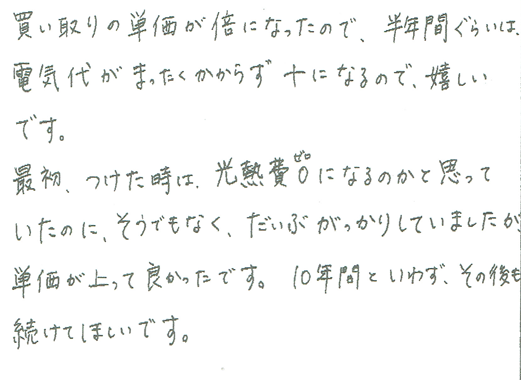 買い取りの単価が倍になったので、半年間ぐらいは、
電気代がまったくかからず＋になるので、嬉しい
です。
最初、つけた時は、光熱費0ゼロになるのかと思って
いたのに、そうでもなく、だいぶがっかりしていましたが
単価が上って良かったです。10年間といわず、その後も
続けてほしいです。